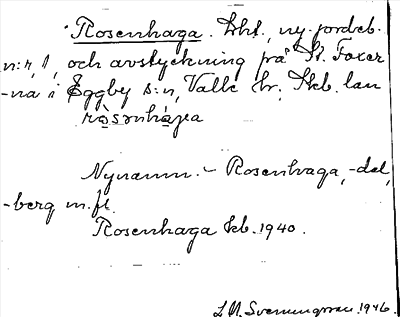 Rosenhaga. Lht., ny jordeb.
n:r, 1, och avstyckning från St. Foxer
-na i Eggby s:n, Valle hr, Skb. län
ròsənhàga
Nynamn. – Rosenhaga, -dal,
-berg m.fl.
Rosenhaga kb. 1940.
1946.